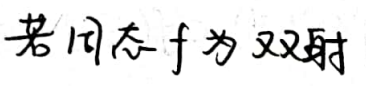 若同态f为双射